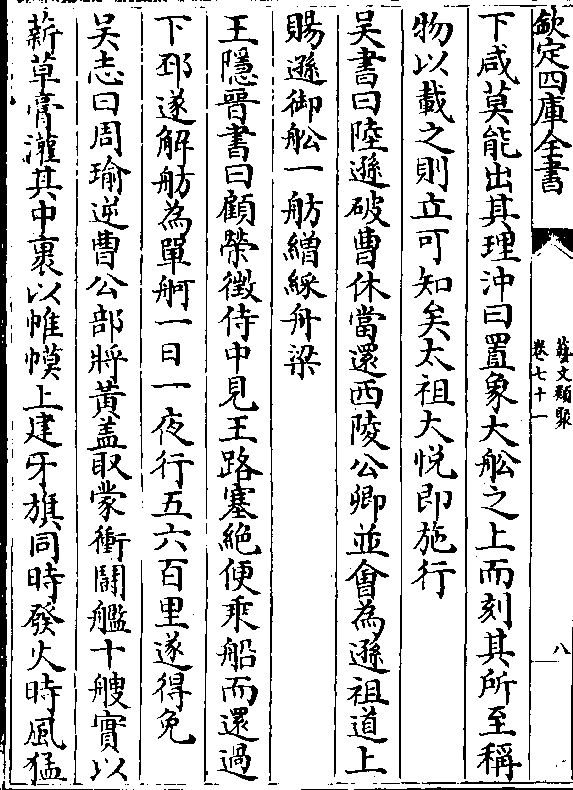 欽定四庫全書
藝文類聚
卷七十一
八
下咸莫能出其理沖曰置象大舩之上而刻其所至稱
物以載之則立可知矣太祖大悦即施行
吳書曰陸遜破曹休當還西陵公卿並會為遜祖道上
賜遜御舩一舫繒綵舟梁
王隱晉書曰顧榮徵侍中見王路塞絶便乘船而還過
下邳遂解舫為單舸一日一夜行五六百里遂得免
吳志曰周瑜逆曹公部將黃盖取蒙衝鬭艦十艘實以
薪草膏灌其中裹以帷幙上建牙旗同時發火時風猛